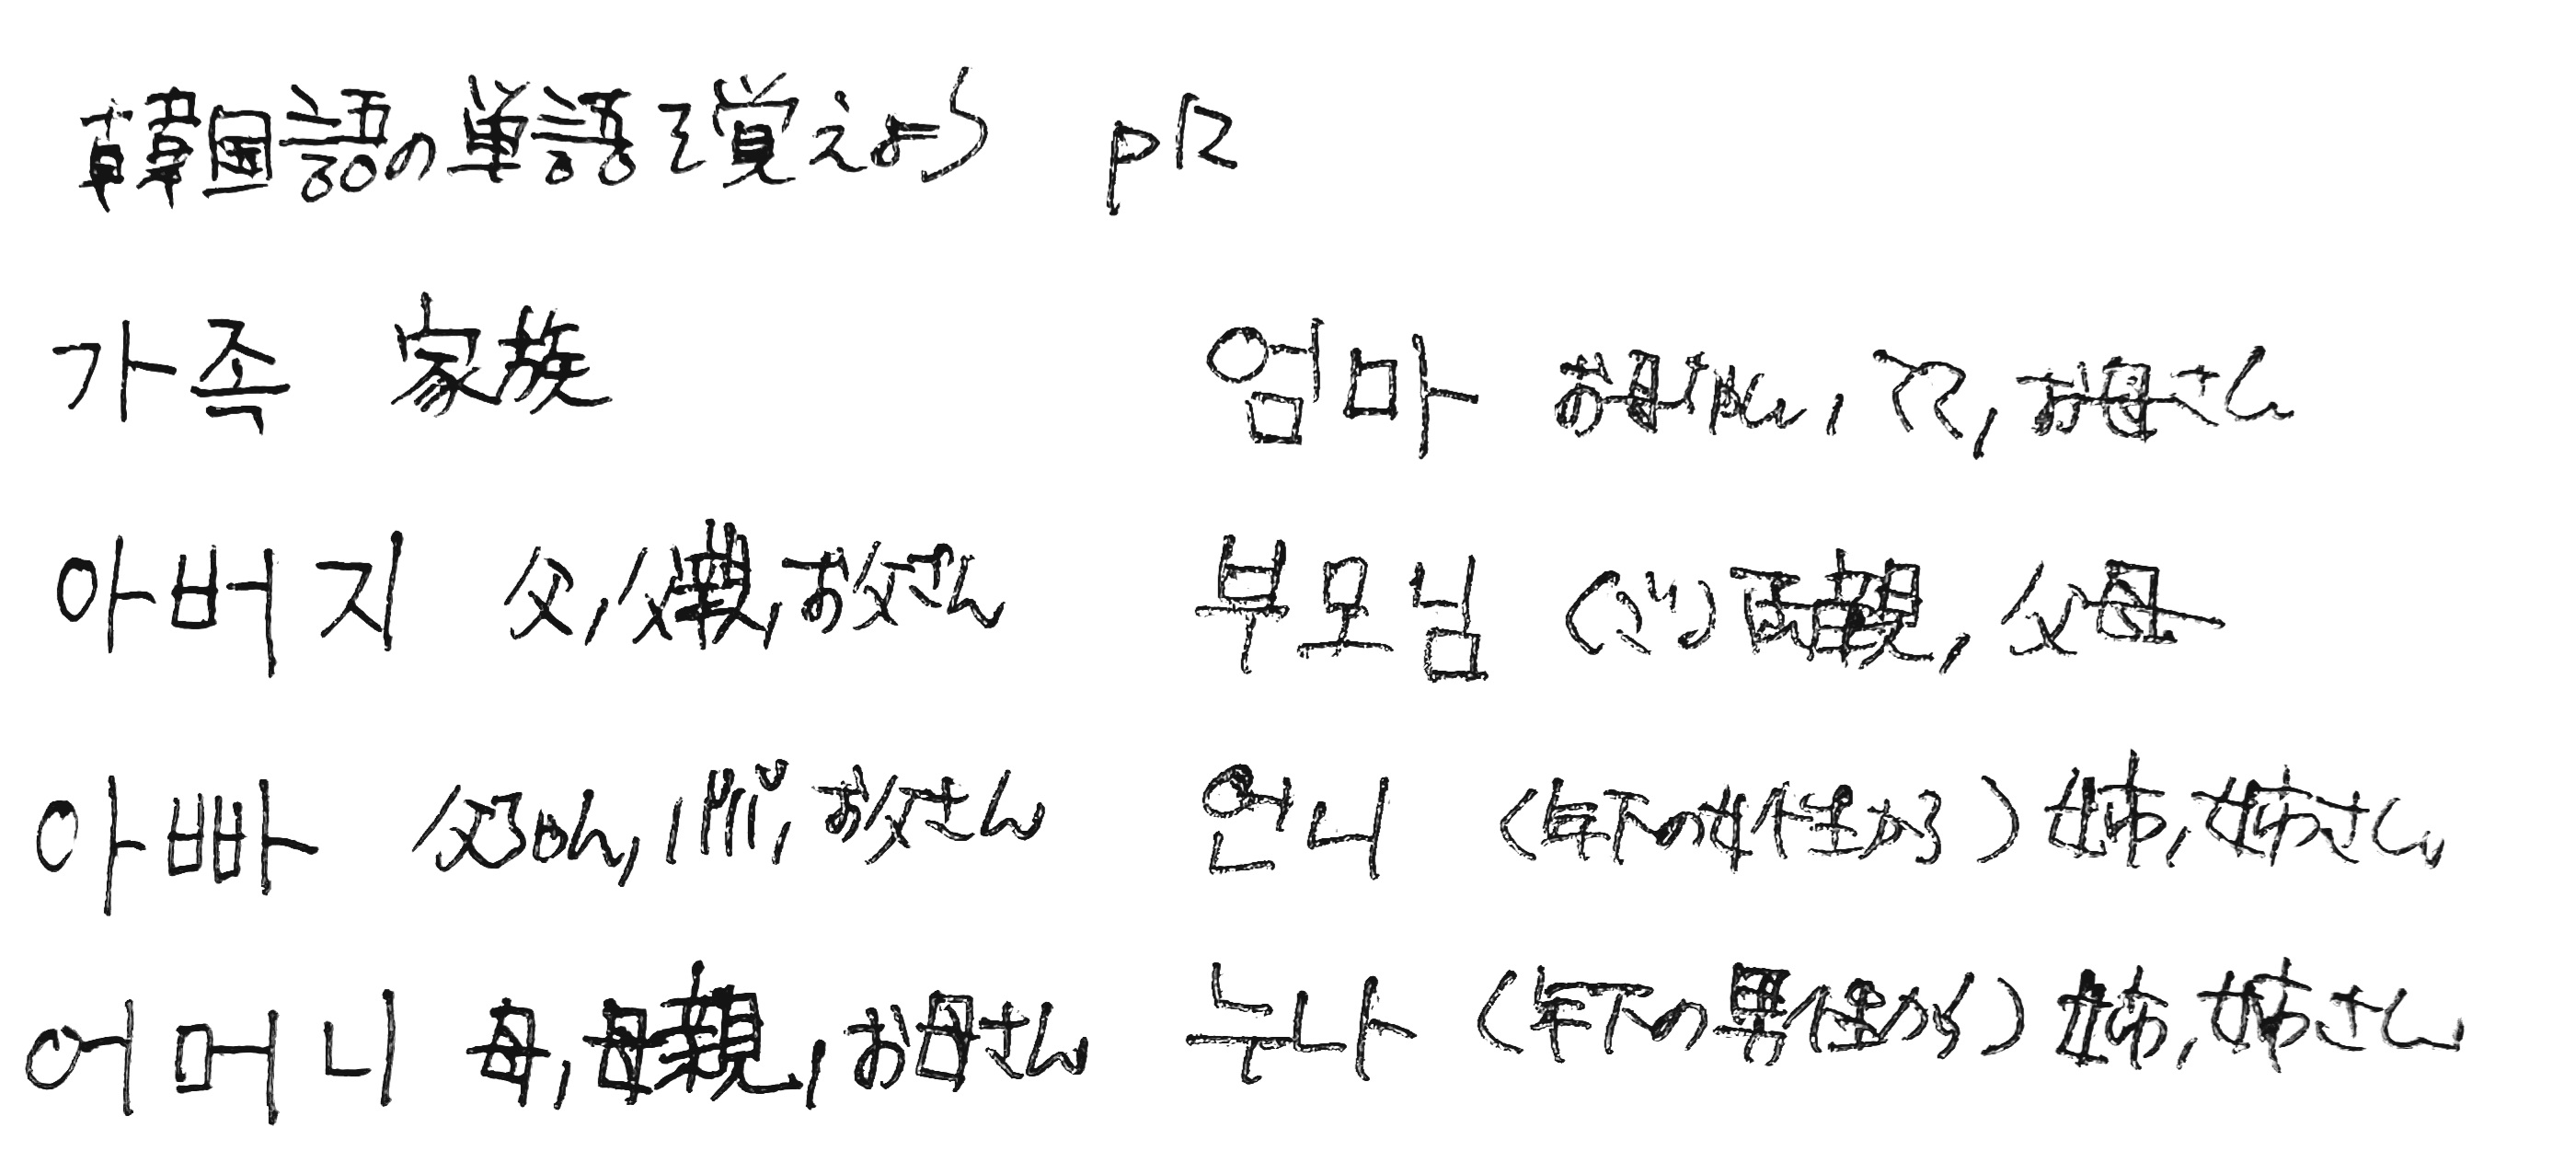 韓国語の単語を覚えよう p12
가족 家族
아버지 父,父親,お父さん
아빠 父ちゃん,パパ,お父さん
어머니 母,母親,お母さん
엄마 お母ちゃん,ママ,お母さん
부모님 (ご)両親,父母
언니 (年下の女性から)姉,姉さん
누나 (年下の男性から)姉,姉さん